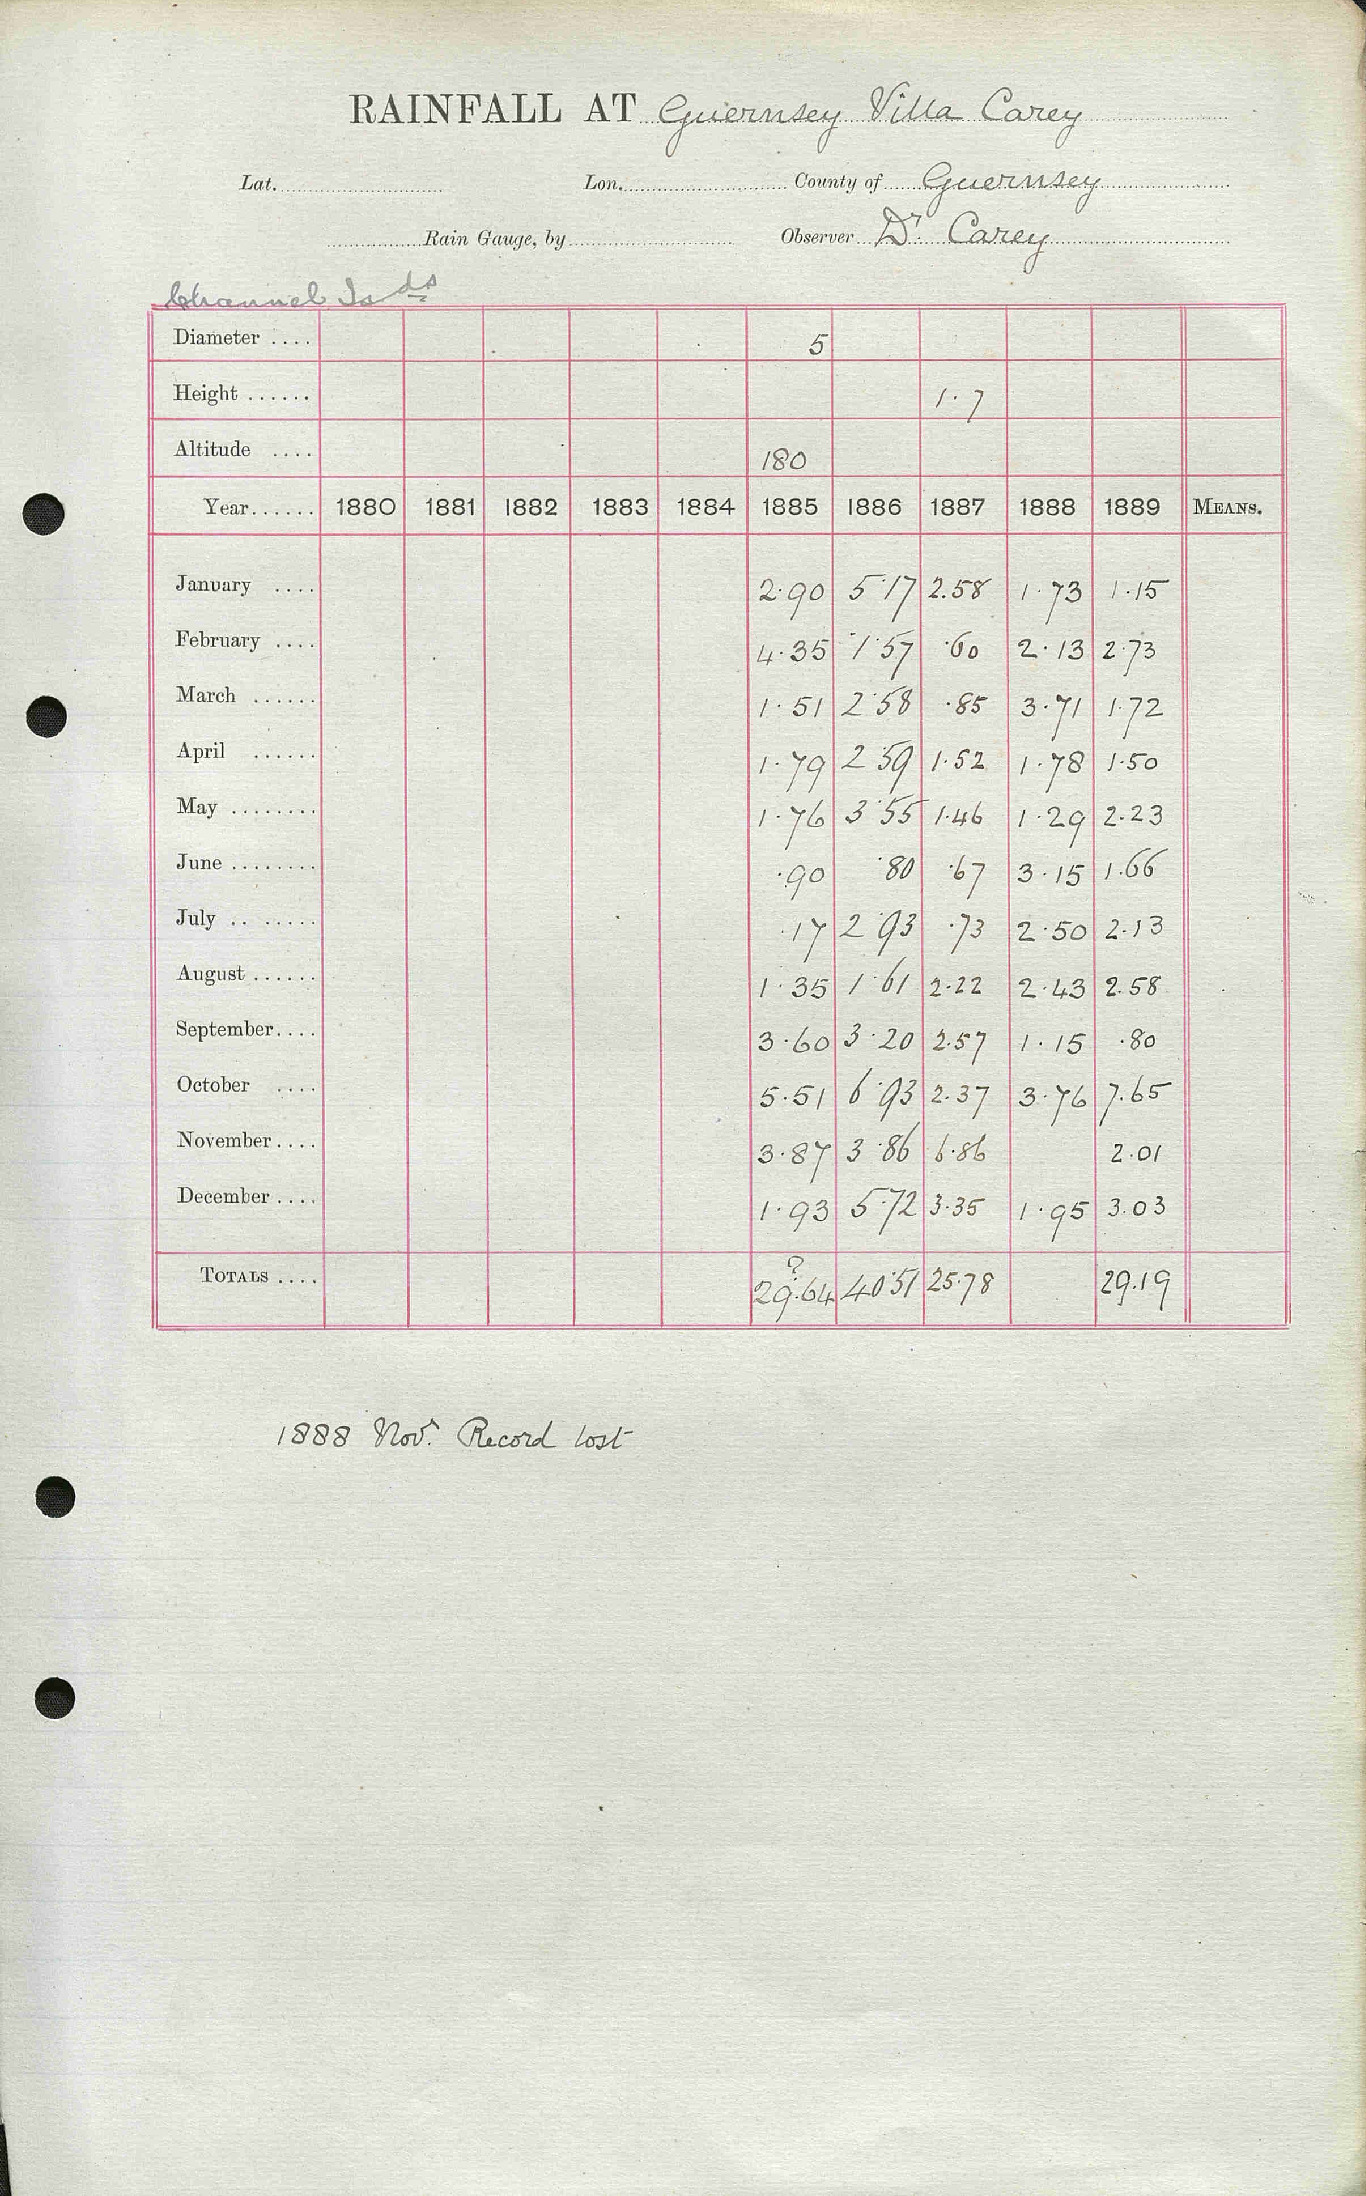 RAINFALL AT Guernsey Villa Carey
Lat. Lon. County of Guernsey
Rain Gauge, by Observer Dr. Carey
Channel Isds
Diameter .... 5
Height ...... 1.7
Altitude .... 180
Year...... 1880 1881 1882 1883 1884 1885 1886 1887 1888 1889 MEANS.
January .... 2.90 5.17 2.58 1.73 1.15
February .... 4.35 1.57 .60 2.13 2.73
March ...... 1.51 2.58 .85 3.71 1.72
April ...... 1.79 2.59 1.52 1.78 1.50
May ........ 1.76 3.55 1.46 1.29 2.23
June ........ .90 .80 .67 3.15 1.66
July .. ..... .17 2.93 .73 2.50 2.13
August ...... 1.35 1.61 2.22 2.43 2.58
September.... 3.60 3.20 2.57 1.15 .80
October .... 5.51 6.93 2.37 3.76 7.65
November.... 3.87 3.86 6.86 2.01
December.... 1.93 5.72 3.35 1.95 3.03
?
TOTALS .... 29.64 40.51 25.78 29.19
1888 Nov. Record lost